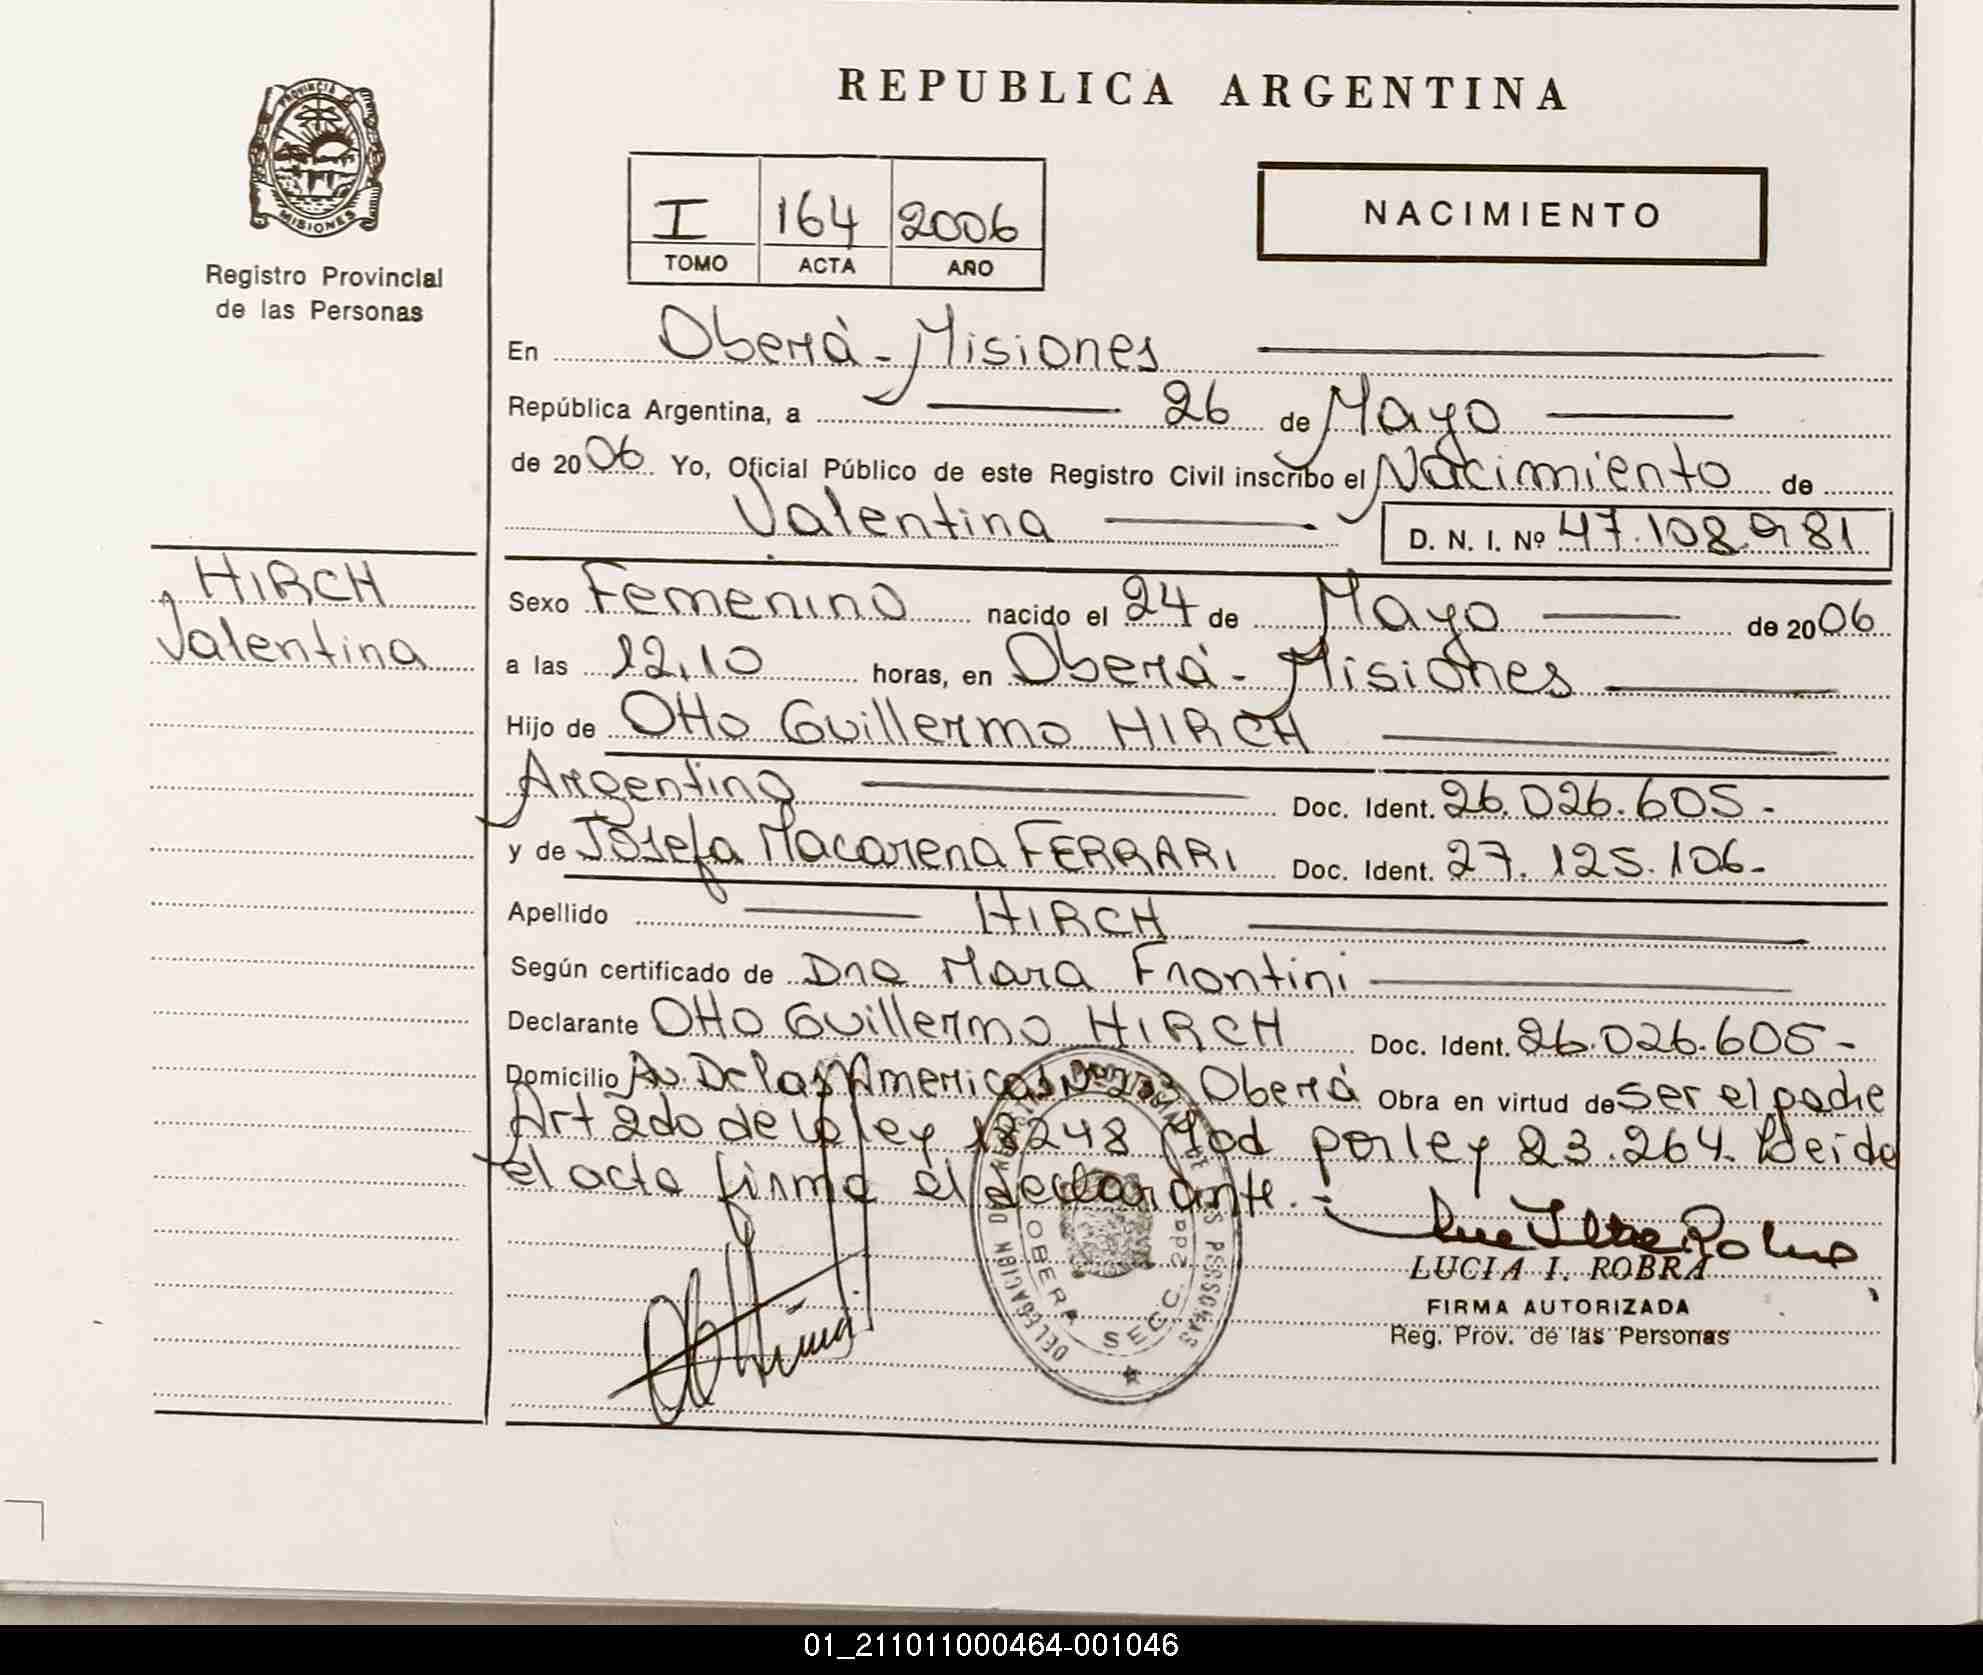 PROVINCIA DE
MISIONES
Registro Provincial
de las Personas
REPUBLICA ARGENTINA
I 164 2006
TOMO ACTA AÑO
NACIMIENTO
En Oberá - Misiones
República Argentina, a 26 de Mayo
de 2006 Yo, Oficial Público de este Registro Civil inscribo el Nacimiento de
Valentina D. N. I. Nº 47.108.981
HIRCH
Valentina
Sexo Femenino nacido el 24 de Mayo de 2006
a las 12,10 horas, en Oberá - Misiones
Hijo de Otto Guillermo HIRCH
Argentino Doc. Ident. 26.026.605.-
y de Josefa Macarena FERRARI Doc. Ident. 27.125.106.-
Apellido HIRCH
Según certificado de Dra Mara Frontini
Declarante Otto Guillermo HIRCH Doc. Ident. 26.026.605-
Domicilio Av. De las Americas Nº Oberá Obra en virtud de ser el padre
Art 2do de la ley 18248 Mod por ley 23.264. Leida
el acta firma el declarante.-
DELEGACION OBERA SECC. 2da
DE LAS PERSONAS
LUCIA I. ROBRA
FIRMA AUTORIZADA
Reg. Prov. de las Personas
01_211011000464-001046